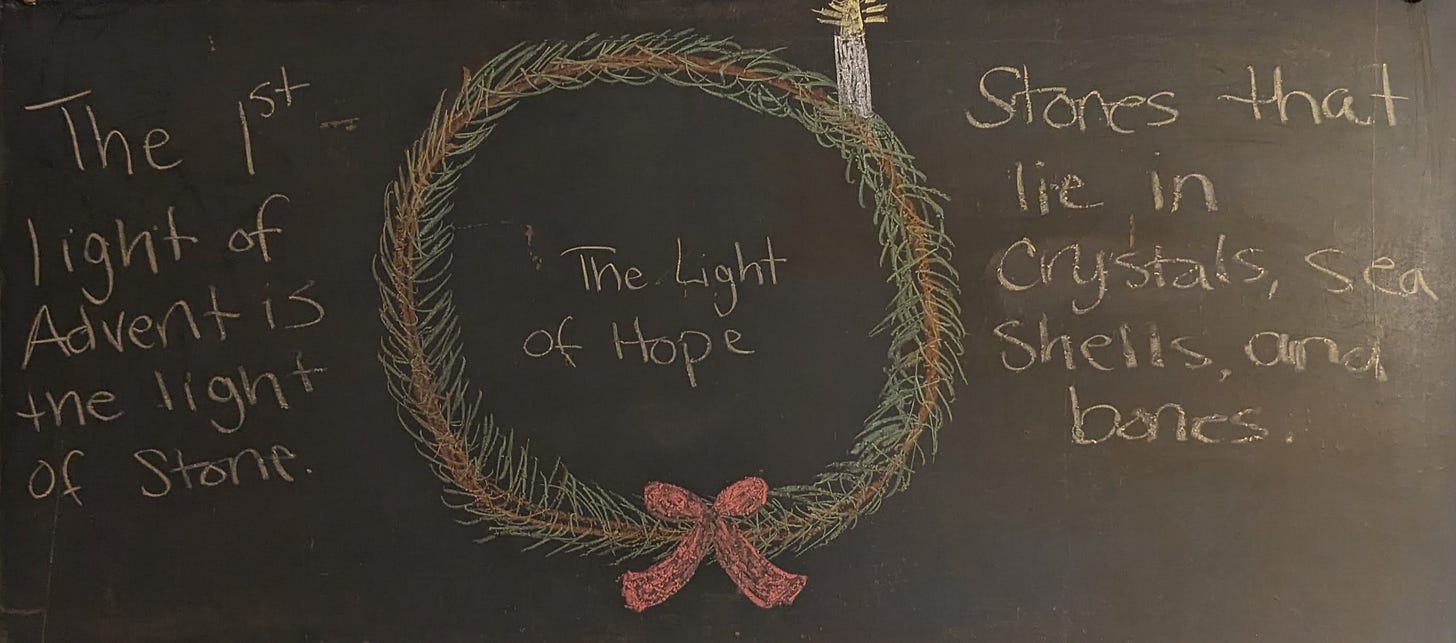 The 1st
light of
Advent is
the light
of Stone.
The Light
of Hope
Stones that
lie in
Crystals, Sea
Shells, and
bones.